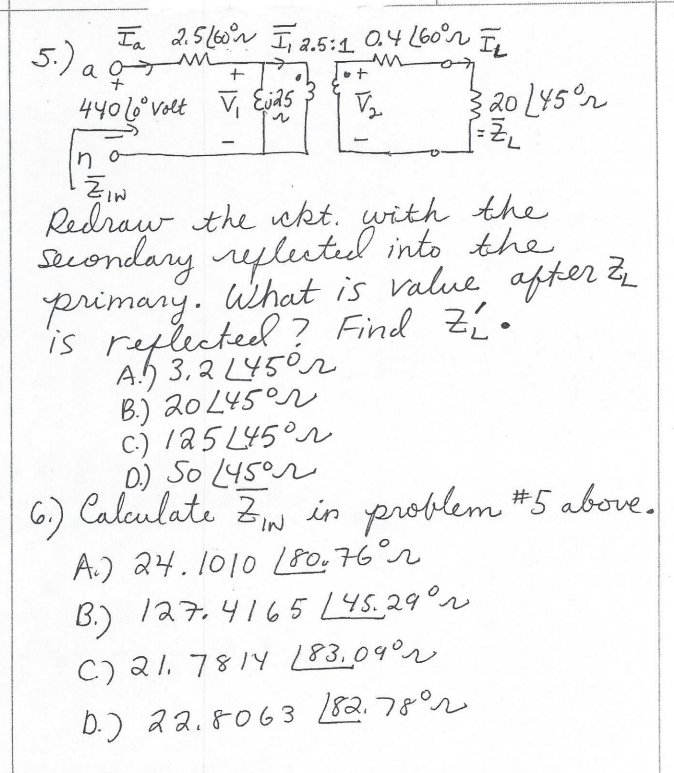 5.) a Īa 2.5∠60°Ω Ī₁ 2.5:1 0.4∠60°Ω ĪL
+ + • • +
440∠0° Volt V̄₁ j25 Ω V̄₂ 20∠45°Ω
- - - = Z̄L
n
Z̄IN
Redraw the ckt. with the
secondary reflected into the
primary. What is value after ZL
is reflected? Find Z'L.
A.) 3.2∠45°Ω
B.) 20∠45°Ω
C.) 125∠45°Ω
D.) 50∠45°Ω
6.) Calculate Z̄IN in problem #5 above.
A.) 24.1010∠80.76°Ω
B.) 127.4165∠45.29°Ω
C.) 21.7814∠83.09°Ω
D.) 22.8063∠82.78°Ω